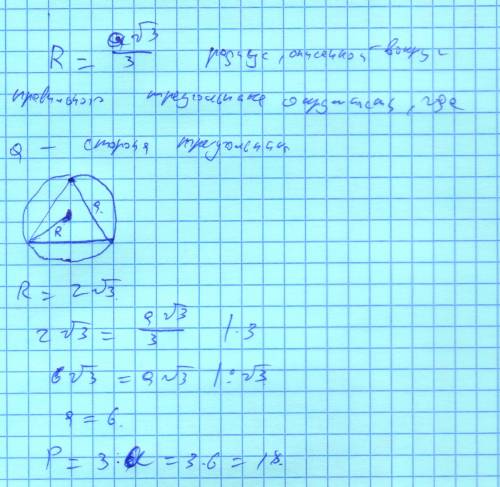 R = a√3/3 радиус, описанной вокруг
правильного треугольника окружности, где
a — сторона треугольника
a
R
R = 2√3.
2√3 = a√3/3 | · 3
6√3 = a√3 | : √3
a = 6.
P = 3 · a = 3 · 6 = 18.